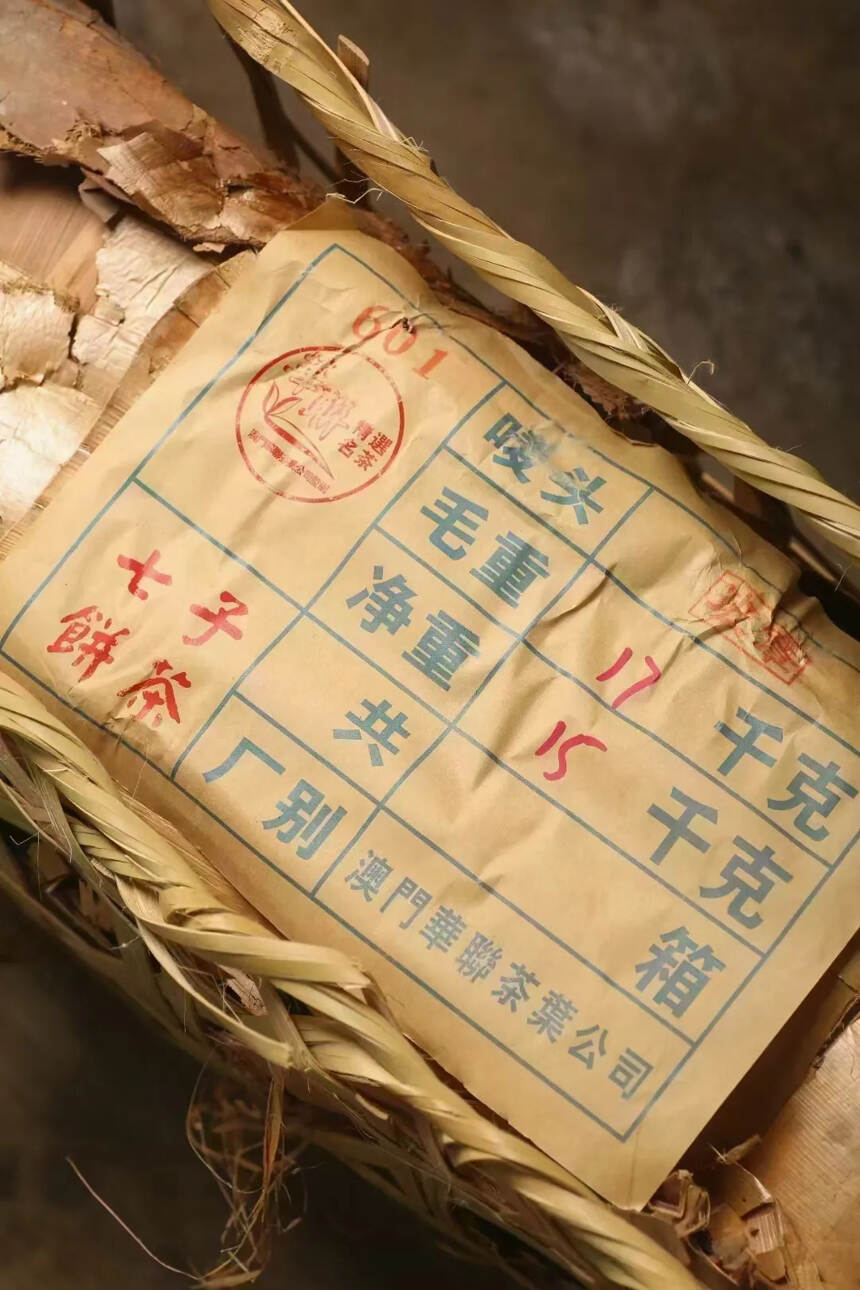 601
華聯
精選
名茶
七子
餅茶
唛头
毛重 17 千克
净重 15 千克
共 箱
厂别 澳門華聯茶葉公司